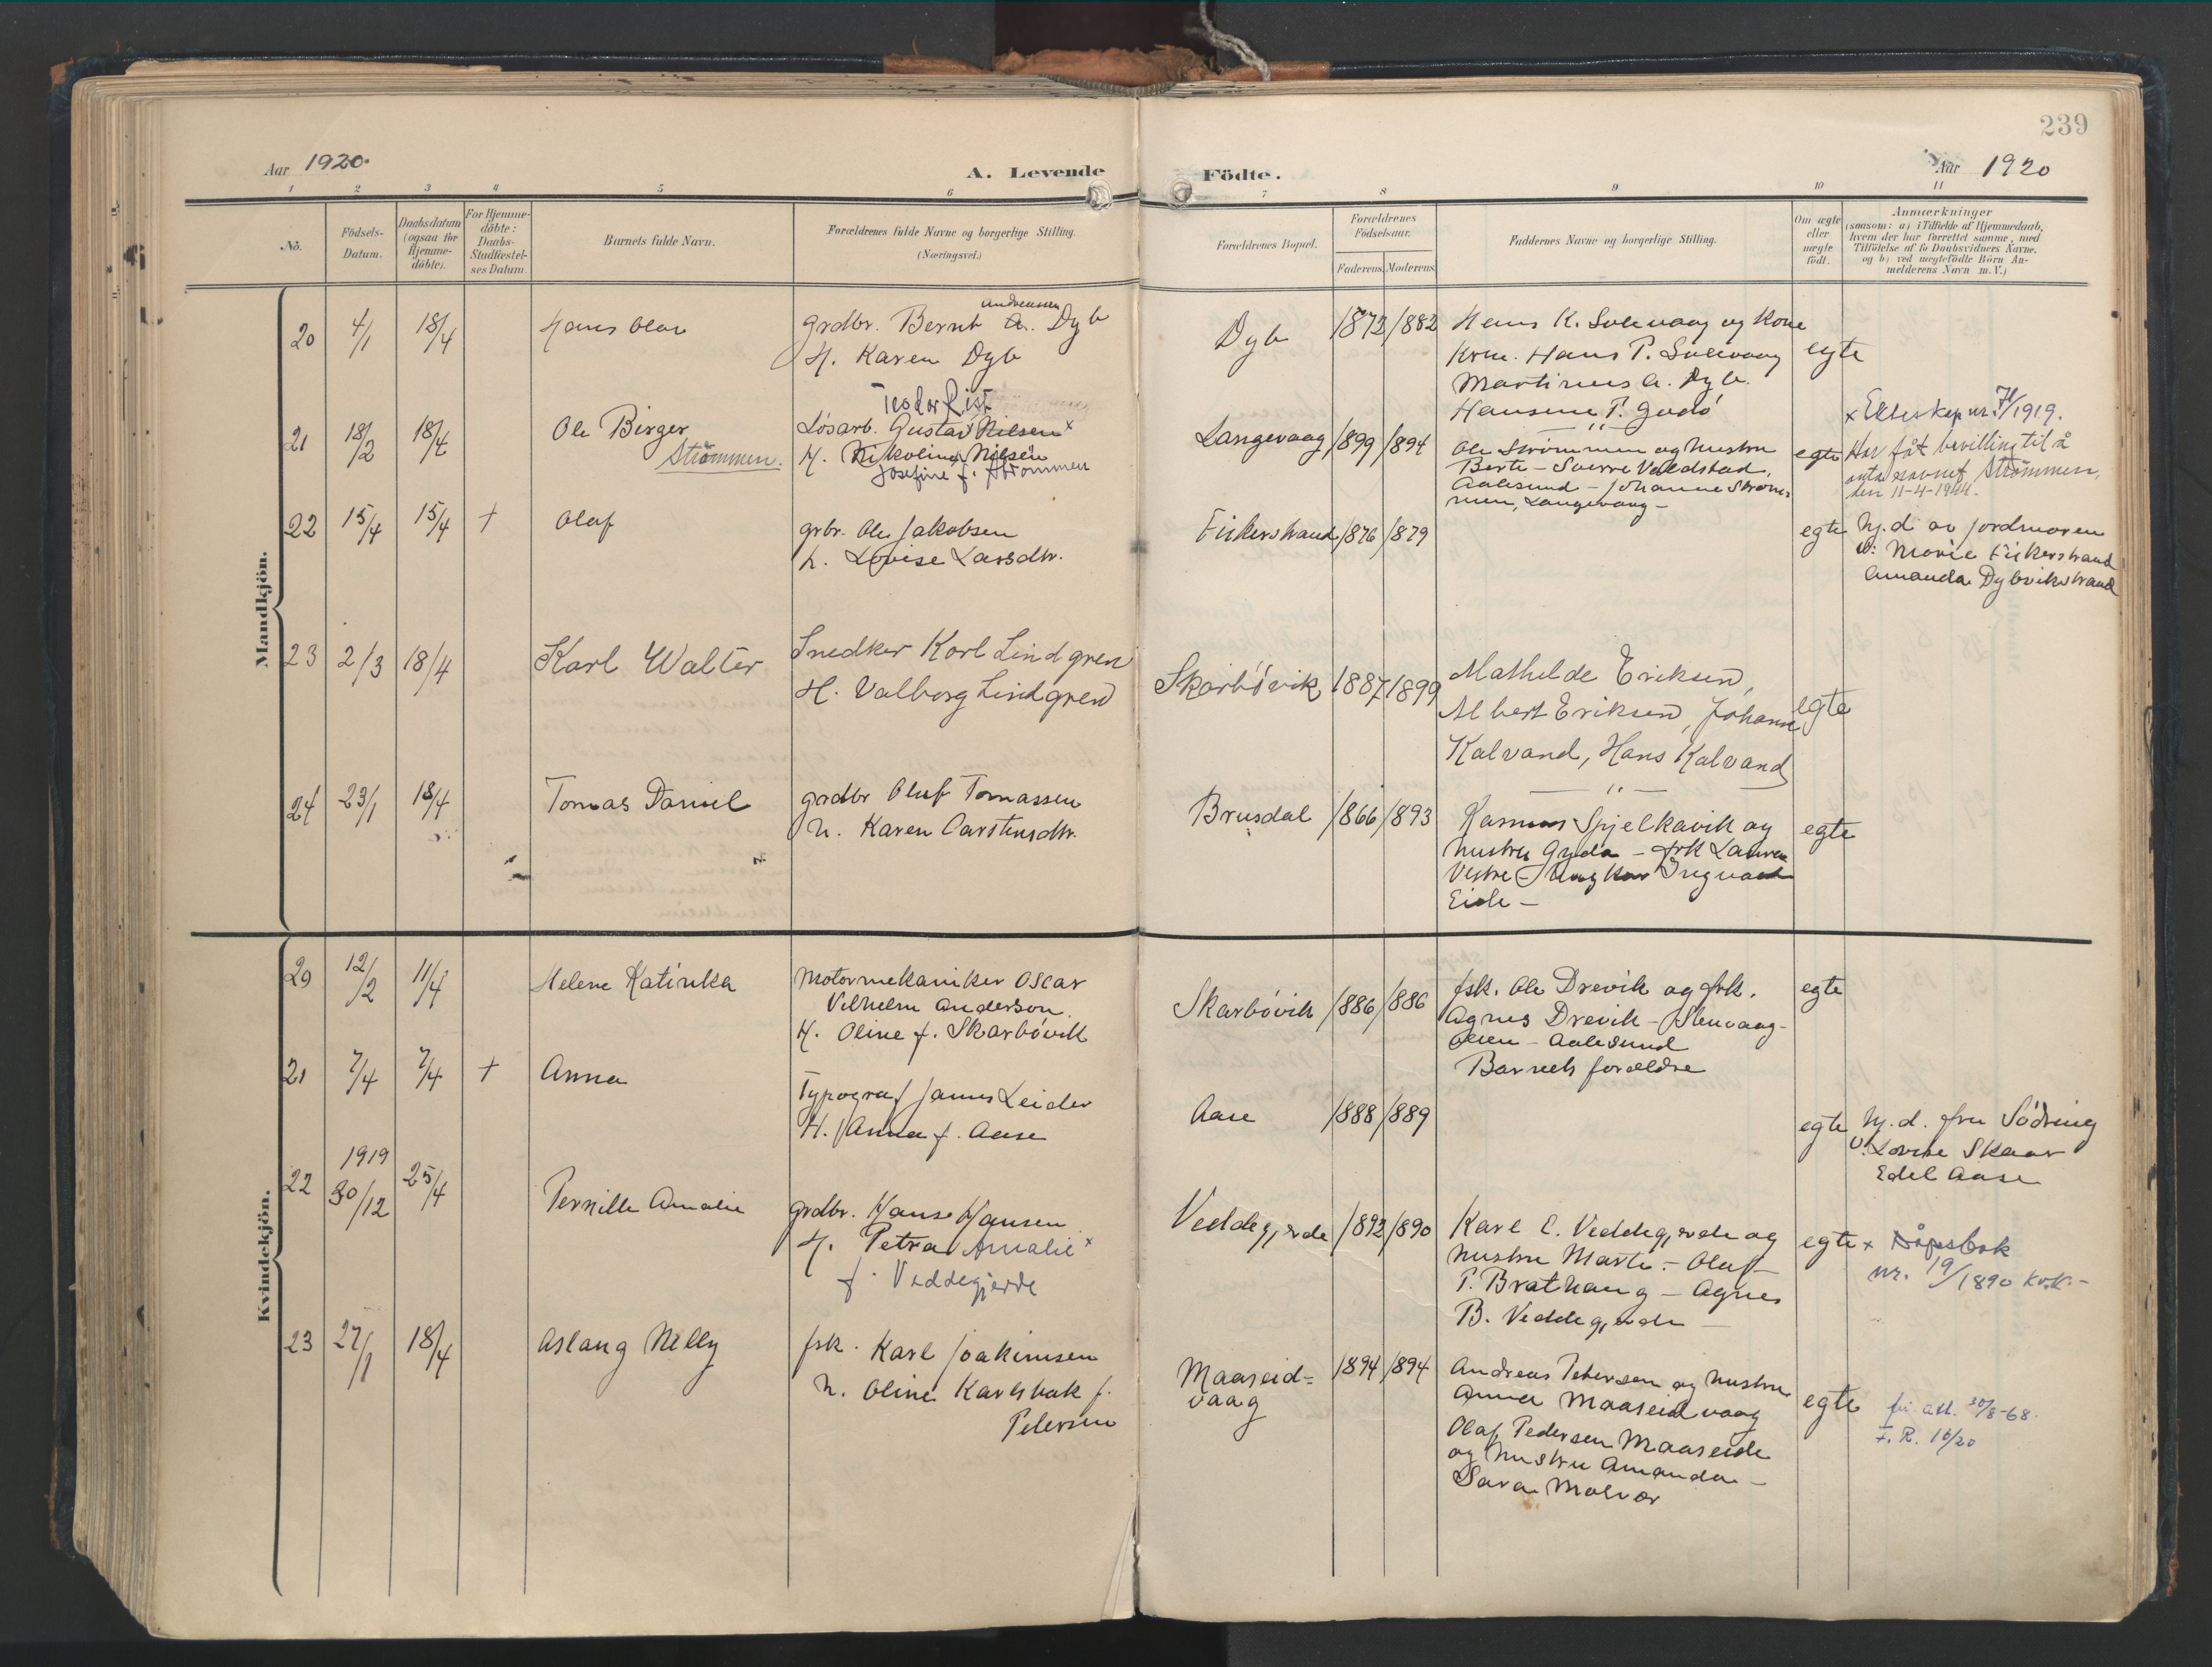 239
Aar 1920.
A. Levende
Födte.
Aar 1920
1 2 3 4 5 6 7 8 9 10 11
No.
Födsels-
Datum.
Daabsdatum
(ogsaa for
Hjemme-
döbte).
For Hjemme-
döbte:
Daabs-
Stadfæstel-
ses Datum.
Barnets fulde Navn.
Forældrenes fulde Navne og borgerlige Stilling.
(Næringsvei.)
Forældrenes Bopæl.
Forældrenes
Födselsaar.
Faderens. Moderens.
Faddernes Navne og borgerlige Stilling.
Om ægte
eller
uægte
födt.
Anmærkninger
(saasom: a) i Tilfælde af Hjemmedaab,
hvem der har forrettet samme, med
Tilföielse af to Daabsvidners Navne,
og b) ved uægtefödte Börn An-
melderens Navn m. V.)
Mandkjön.
20 4/1 18/4 Hans Olav
Andreassen
grdbr. Bernt A. Dyb
H. Karen Dyb
Dyb 1872 1882
Hans K. Sulevaag og Kone
Kone. Hans P. Sulevaag
Martinus A. Dyb.
Hansine P. Godö
egte
21 18/2 18/4 Ole Birger
Strömmen.
Teodor Rist
Løsarb. Gustav Nilsen x
H. Nikoline Nilsen
Josefine f. Strömmen
Langevaag 1899 1894
Ole Strömmen og hustru
Berte - Sverre Valdstad,
Aalesund - Johanne Ström-
men, Langevaag -
egte
x Ekteskap nr. 71/1919.
Har fåt bevilling til å
anta navnet Strömmen,
den 11-4-1944.
22 15/4 15/4 + Olaf
grbr. Ole Jakobsen
h. Lovise Larsdtr.
Fiskerstrand 1876 1879
egte
Hj.d. av jordmoren
v: Marie Fiskerstrand
Amanda Dybvikstrand
23 2/3 18/4 Karl Walter
Snedker Karl Lindgren
H. Valborg Lindgren
Skarbövik 1887 1899
Mathilde Eriksen,
Albert Eriksen, Johanne
Kalvand, Hans Kalvand
egte
24 23/1 18/4 Tomas Daniel
grdbr Oluf Tomassen
h. Karen Carstensdtr.
Brusdal 1866 1893
Rasmus Spjelkavik og
hustru Gyda - frk Laura
Vestre - Ungkar Ingvald
Eide -
egte
Kvindekjön.
20 12/2 11/4 Helene Katinka
Motormekaniker Oscar
Vilhelm Anderson.
H. Oline f. Skarbövik
Skarbövik 1886 1886
fsk. Ole Drevik og frk.
Agnes Drevik -
Olsen - Aalesund
Barnets forældre
egte
21 7/4 7/4 + Anna
Typograf James Leider
H. Anna f. Aase
Aase 1888 1889
egte
Hj.d. fru Södring
v: Lovise Skaar
Edel Aase
22 1919 30/12 25/4 Pernille Amalie
grdbr. Hans Hansen
H. Petra Amalie x
f. Veddegjerde
Veddegjerde 1892 1890
Karl E. Veddegjerde og
hustru Marte. - Olaf
P. Brathaug - Agnes
B. Veddegjerde -
egte
x Dåpsbok
nr. 19/1890 Kvk.-
23 27/1 18/4 Aslaug Nelly
fsk. Karl Joakimsen
h. Oline Karlsbak f.
Petersen
Maaseid-
vaag
1894 1894
Andreas Petersen og hustru
Anna Maaseidvaag
Olaf Pedersen Maaseide
og hustru Amanda -
Sara Molvær
egte
fö. att. 30/8-68.
F. R. 16/20